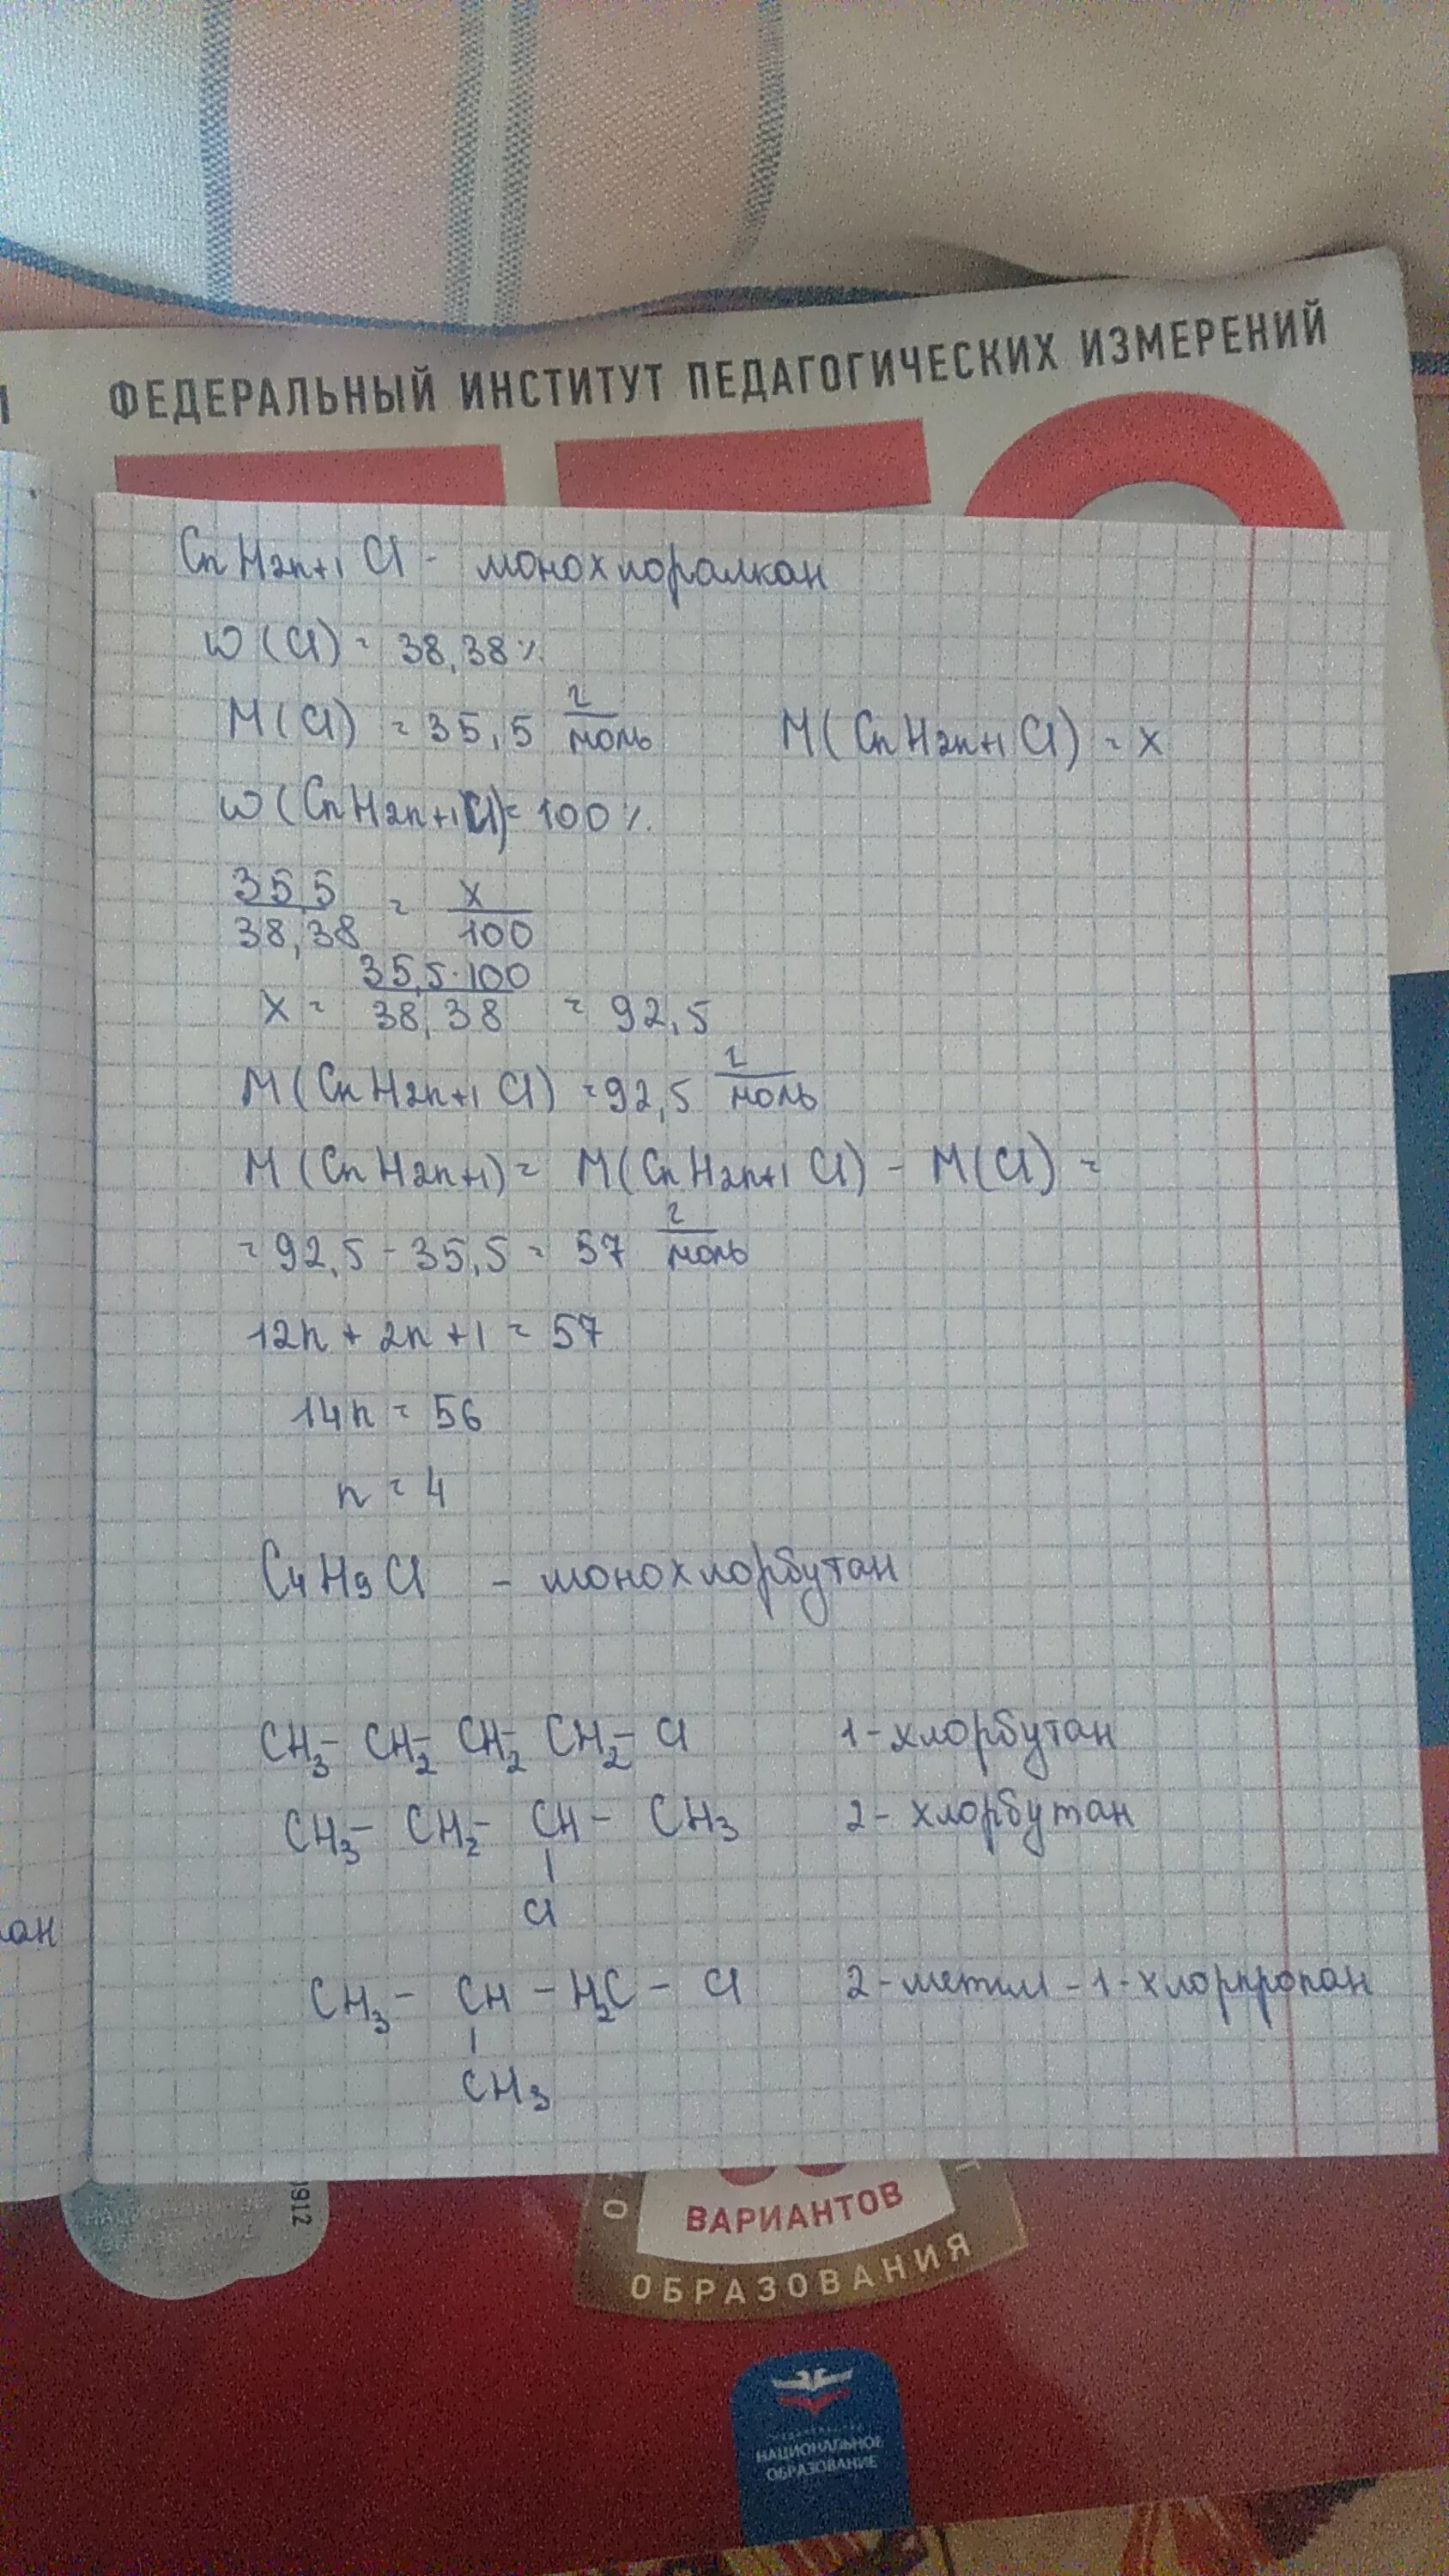 ФЕДЕРАЛЬНЫЙ ИНСТИТУТ ПЕДАГОГИЧЕСКИХ ИЗМЕРЕНИЙ
CnH2n+1 Cl - монохлоралкан
w (Cl) = 38,38%
M(Cl) = 35,5 г/моль M(CnH2n+1Cl) = x
w (CnH2n+1Cl) = 100%
35,5/38,38 = x/100
x = 35,5·100/38,38 = 92,5
M(CnH2n+1Cl) = 92,5 г/моль
M(CnH2n+1) = M(CnH2n+1Cl) - M(Cl) =
= 92,5 - 35,5 = 57 г/моль
12n + 2n + 1 = 57
14n = 56
n = 4
C4H9Cl - монохлорбутан
CH3- CH2- CH2- CH2- Cl 1-хлорбутан
CH3- CH2- CH- CH3 2-хлорбутан
|
Cl
ан
CH3- CH - H2C - Cl 2-метил-1-хлорпропан
|
CH3
912
ВАРИАНТОВ
ОБРАЗОВАНИЯ
НАЦИОНАЛЬНОЕ
ОБРАЗОВАНИЕ